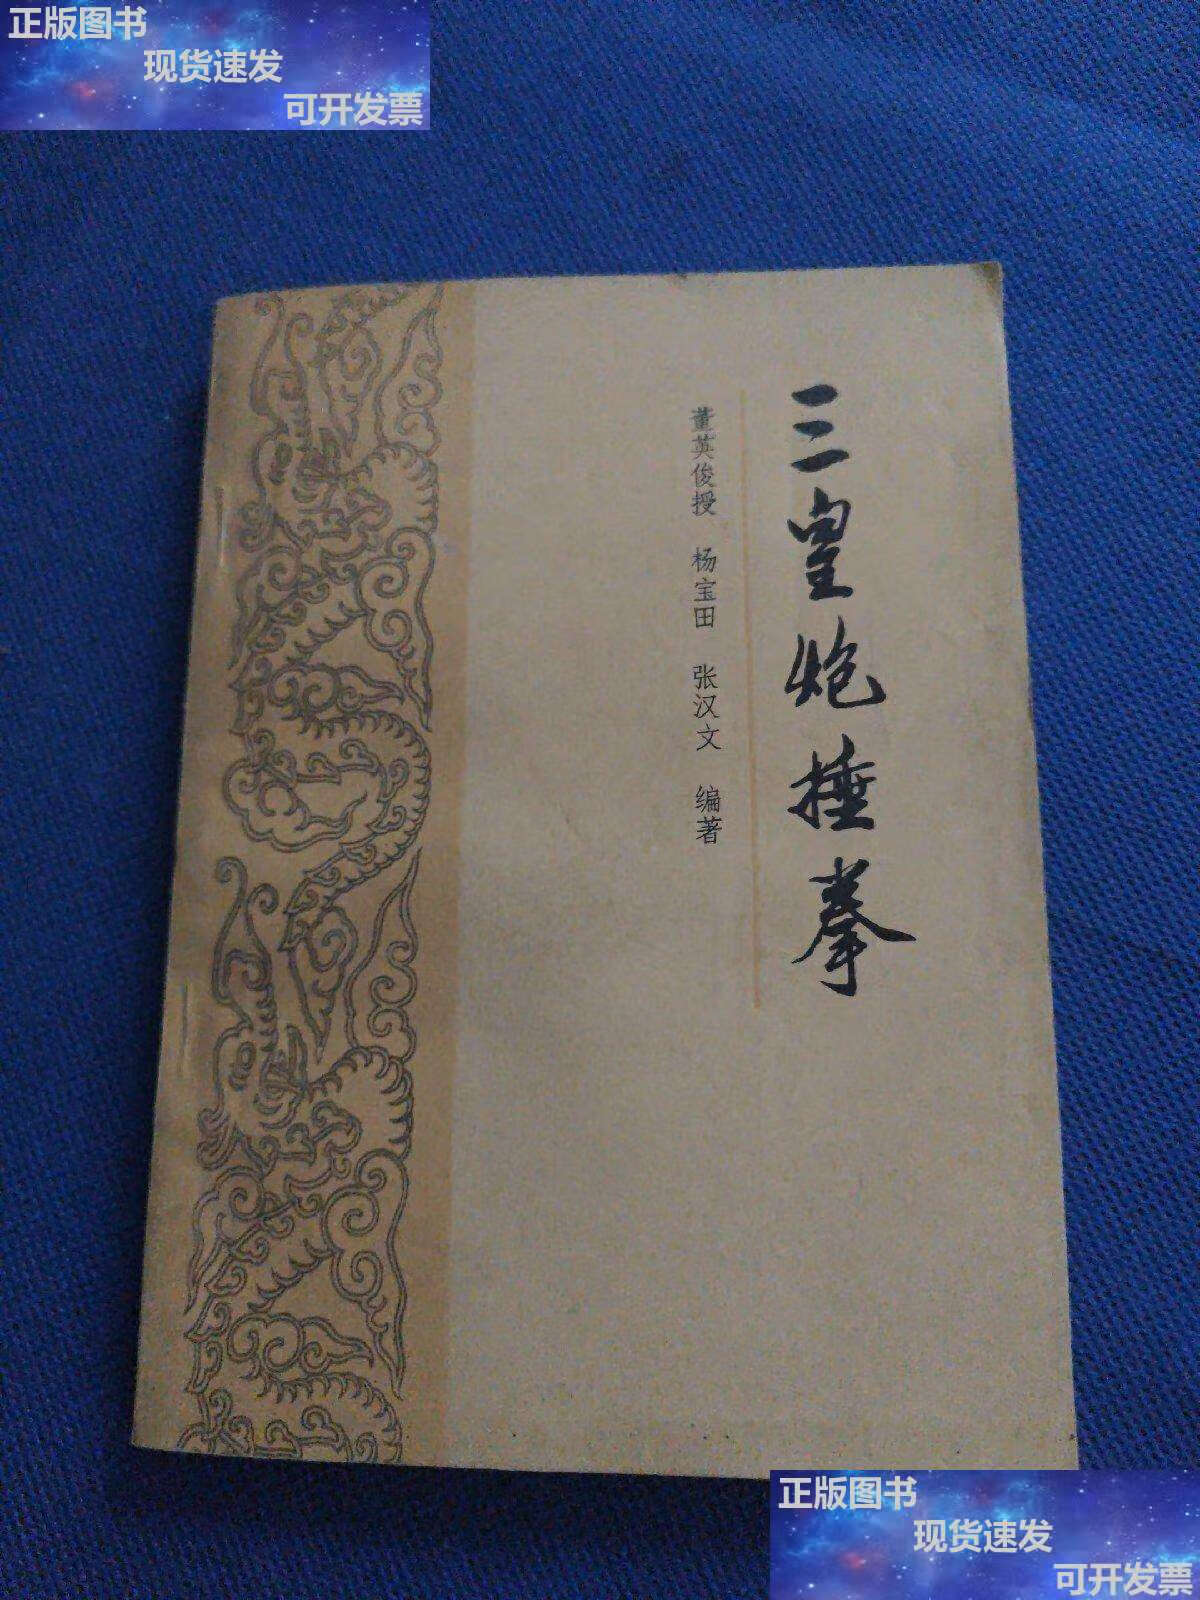 正版图书
现货速发
可开发票
三皇炮捶拳
董英俊授 杨宝田 张汉文 编著
正版图书
现货速发
可开发票